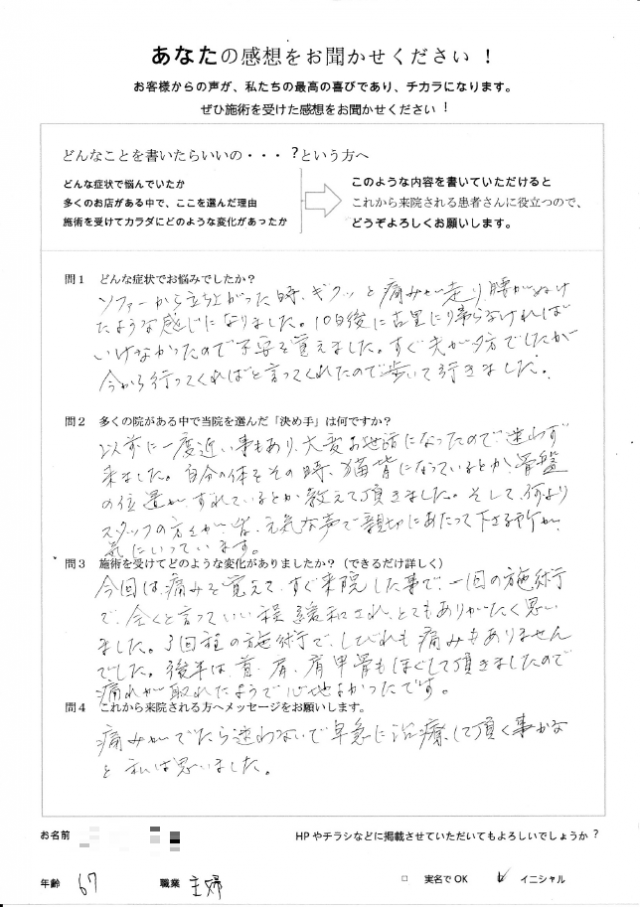 あなたの感想をお聞かせください！
お客様からの声が、私たちの最高の喜びであり、チカラになります。
ぜひ施術を受けた感想をお聞かせください！
どんなことを書いたらいいの・・・？という方へ
どんな症状で悩んでいたか
多くのお店がある中で、ここを選んだ理由
施術を受けてカラダにどのような変化があったか
このような内容を書いていただけると
これから来院される患者さんに役立つので、
どうぞよろしくお願いします。
問１ どんな症状でお悩みでしたか？
ソファーから立ち上がった時、ギクッと痛みが走り、腰がぬけ
たような感じになりました。10日後に古里に帰らなければ
いけなかったので不安を覚えました。すぐ夫が夕方でしたが
今から行ってくればと言ってくれたので歩いて行きました。
問２ 多くの院がある中で当院を選んだ「決め手」は何ですか？
以前に一度近い事もあり、大変お世話になったので迷わず
来ました。自分の体をその時、猫背になっているとか骨盤
の位置が、ずれているとか教えて頂きました。そして、何より
スタッフの方々が皆、元気な声で親切にあたって下さる所が
気にいっています。
問３ 施術を受けてどのような変化がありましたか？（できるだけ詳しく）
今回は、痛みを覚えて、すぐ来院した事で、一回の施術
で、全くと言っていい程 緩和され、とてもありがたく思い
ました。3回程の施術で、しびれも痛みもありません
でした。後半は、首、肩、肩甲骨もほぐして頂きましたので
痛れが取れたようで心地よかったです。
問４ これから来院される方へメッセージをお願いします。
痛みがでたら迷わないで早急に治療して頂く事かな
と私は思いました。
お名前
HPやチラシなどに掲載させていただいてもよろしいでしょうか？
年齢 67 職業 主婦 □ 実名でOK ✓ イニシャル